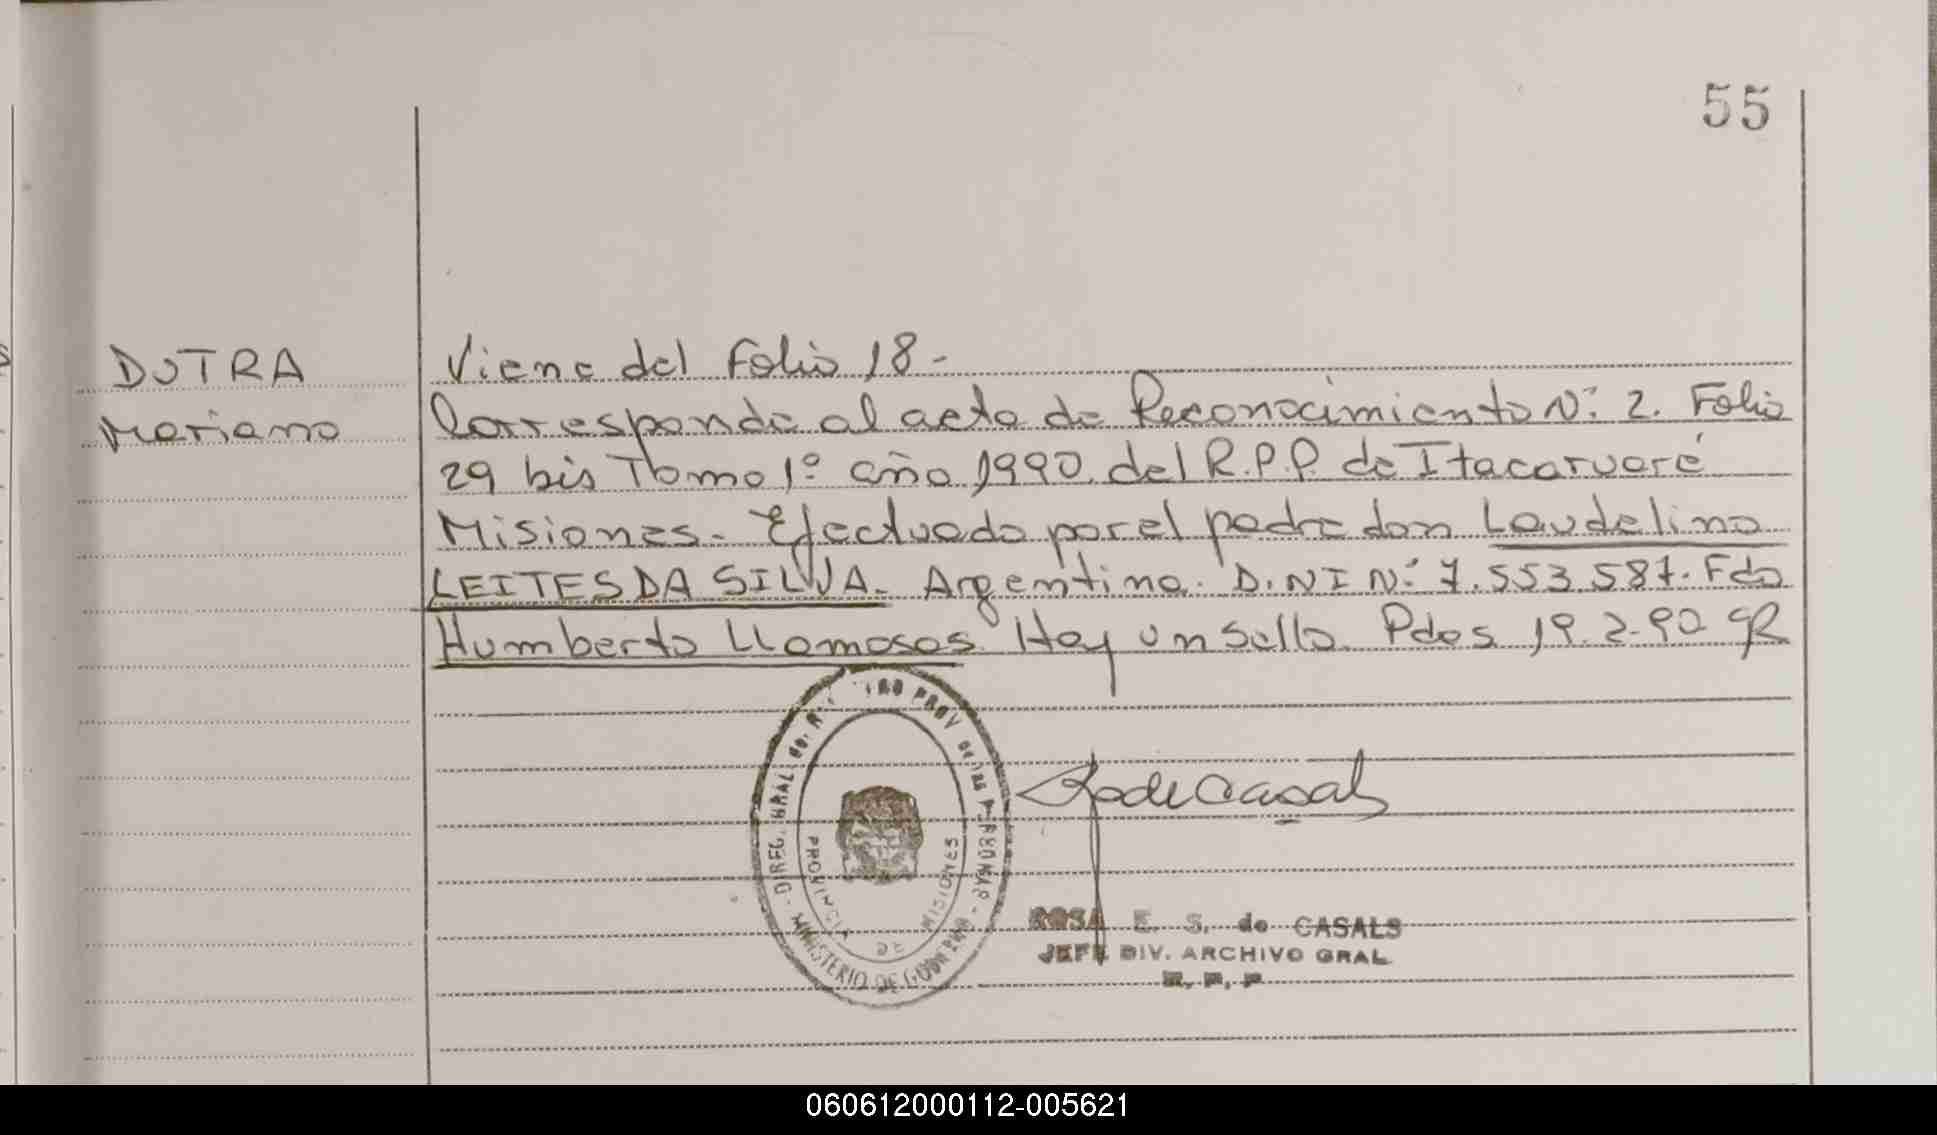 55
DUTRA
Mariano
Viene del Folio 18-
Corresponde al acta de Reconocimiento N: 2. Folio
29 bis Tomo 1º año 1990. del R.P.P. de Itacaruaré
Misiones- Efectuado por el padre don Laudelino
LEITES DA SILVA- Argentino. D.N I N: 7.553.587. Fdo
Humberto LLamosas. Hay un sello. Pdas 19.2-90
DIREC. GRAL. PROV. de las PERSONAS - MINISTERIO DE GOBIERNO -
PROVINCIA DE MISIONES
ROSA E. S. de CASALS
JEFE DIV. ARCHIVO GRAL.
R. P. P
060612000112-005621